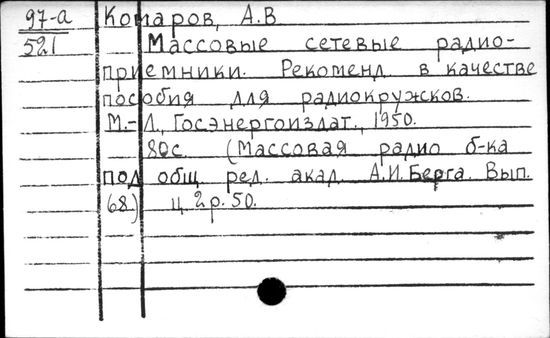 97-а
521
Комаров, А.В
Массовые сетевые радио-
приемники. Рекоменд. в качестве
пособия для радиокружсков.
М.-Л., Госэнергоиздат., 1950.
80с. (Массовая радио б-ка
под общ. ред. акад. А.И.Берга. Вып.
68.) ц. 2р. 50.